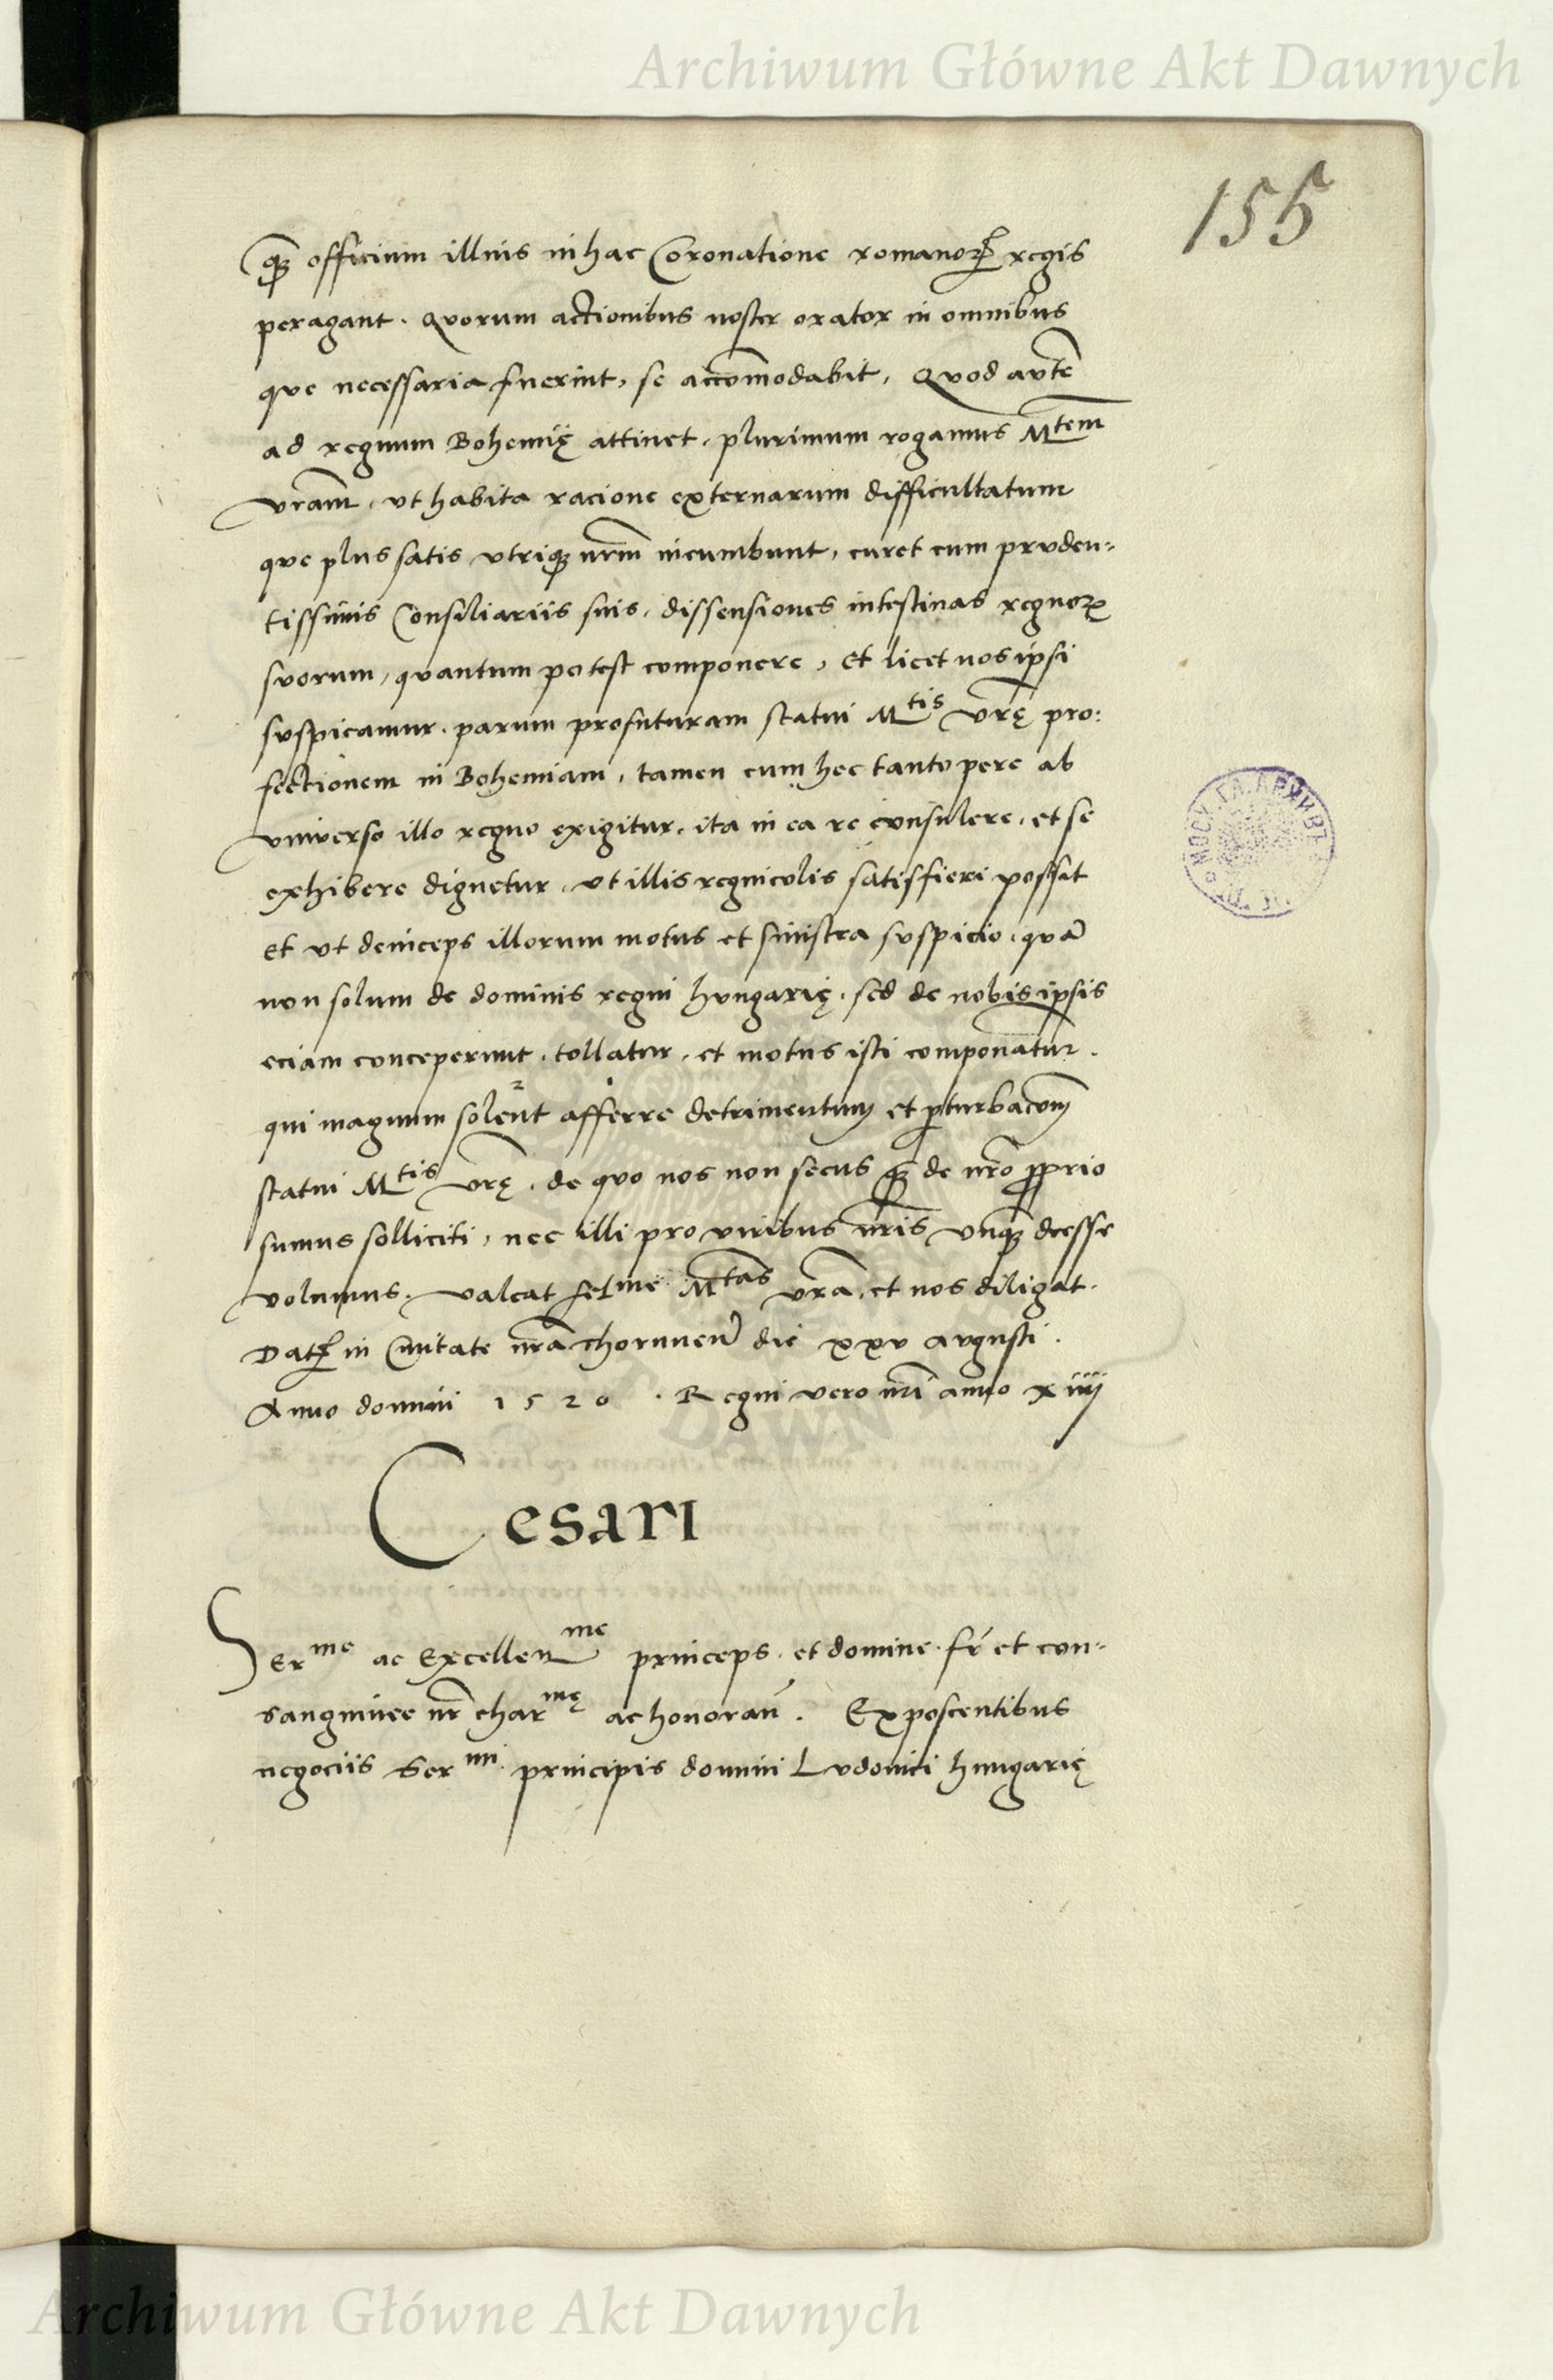 Archiwum Główne Akt Dawnych
155
qꝫ officium illius in hac Coronatione romanoꝝ regis
peragant. Quorum actionibus noster orator in omnibus
que necessaria fuerint, se accōmodabit, Quod autē
ad regnum Bohemię attinet, plurimum rogamus Mtem
vrām, ut habita racione externarum difficultatum
que plus satis utriqꝫ nrm̄ incumbunt, curet cum pruden-
tissimis Consiliariis suis, dissensiones intestinas regnoꝝ
suorum, quantum potest componere, et licet nos ipsi
suspicamur, parum profuturam statui Mtis vrę̄ pro:
fectionem in Bohemiam, tamen cum hec tantopere ab
universo illo regno exigitur, ita in ea re consulere, et se
exhibere dignetur, ut illis regnicolis satisfieri possit
et ut deinceps illorum motus et sinistra suspicio, quā
non solum de dominis regni hungarię, sed de nobis ipsis
eciam conceperunt, tollatur, et motus isti componātur.
qui magnum solēnt afferre detrimentum et ꝑturbacōm
statui Mtis vrę̄, de quo nos non secus qꝫ de nrō ꝓprio
sumus solliciti, nec illi pro viribus nrīs unqꝫ deesse
volumus. valeat felme Mtas vrā, et nos diligat.
Datꝫ in Civitate nrā thoruneñ die xxv augusti.
Anno domini 1520. Regni vero nrī anno xiiij
Cesari
Serme ac Excellenme princeps et domine fr̄ et con-
sanguinee nr̄ charmę ac honorañ. Exposcentibus
negociis Sermi principis domini Ludovici hungarię
Archiwum Główne Akt Dawnych